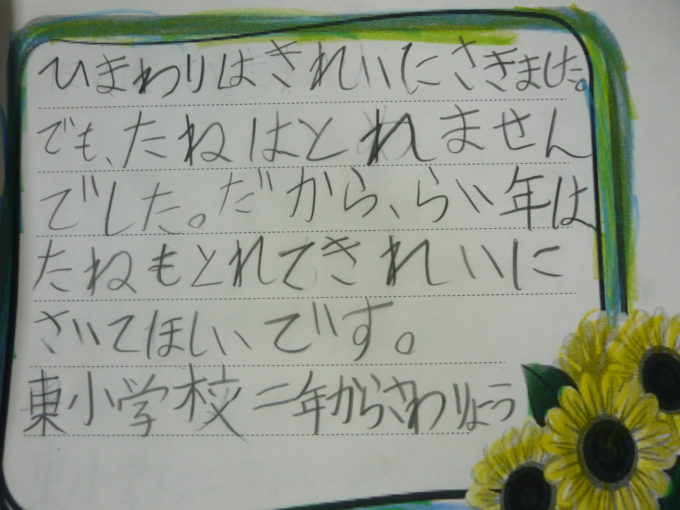 ひまわりはきれいにさきました。
でも、たねはとれません
でした。だから、らい年は
たねもとれてきれいに
さいてほしいです。
東小学校二年からさわりょう